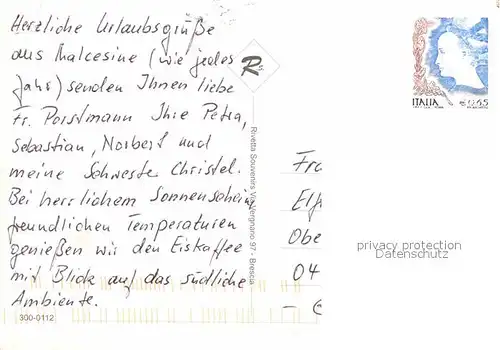 Herzliche Urlaubsgrüße
aus Malcesine (wie jedes
Jahr) senden Ihnen liebe
Fr. Porstmann Ihre Petra,
Sebastian, Norbert und
meine Schwester Christel.
Bei herrlichem Sonnenschein,
freundlichen Temperaturen
genießen wir den Eiskaffee
mit Blick auf das südliche
Ambiente.
300-0112
R
Rivetta Souvenirs Via Vergnano 97 - Brescia
ITALIA €0,65
Fra
Elf
Obe
04
privacy protection
Datenschutz